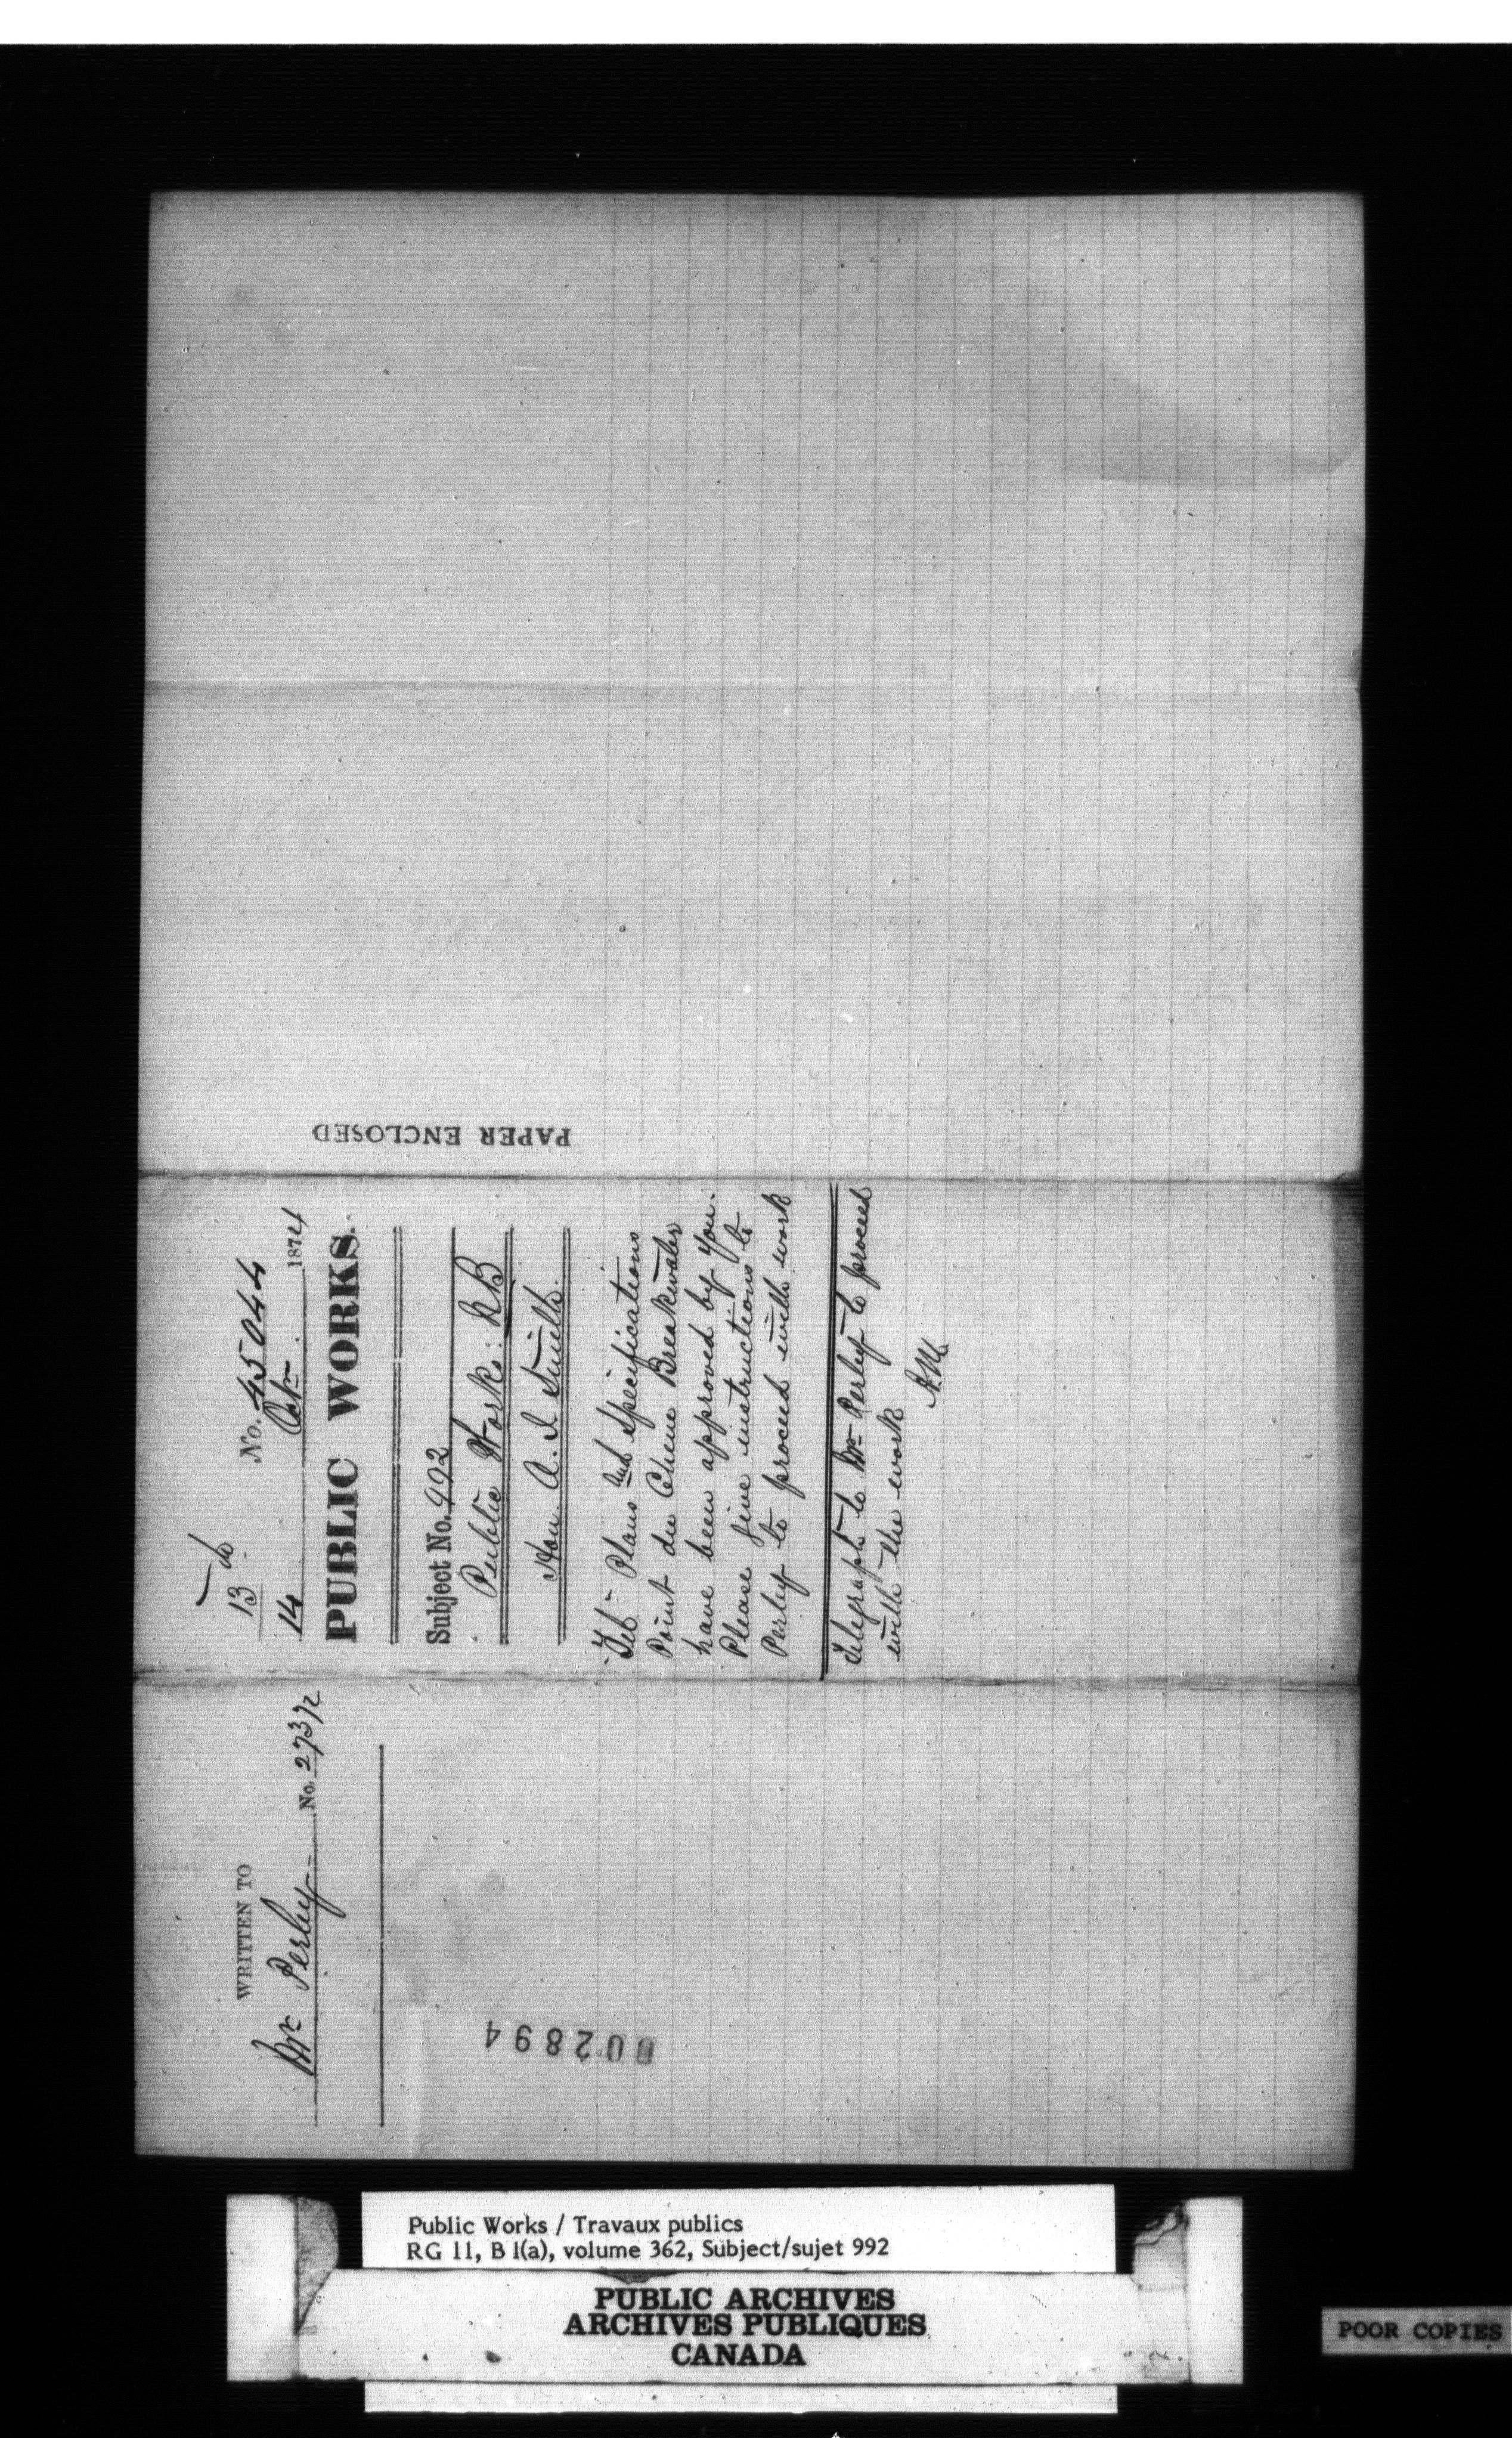 WRITTEN TO
Mr Perley No. 27372
13 do
No. 45044
14 Octr. 1874
PUBLIC WORKS.
Subject No. 992
Public Works: NB
Hon. A. I Smith.
Tel- Plans and Specifications
Point du Chene Breakwater
have been approved by you.
Please give instructions to
Perley to proceed with work
Telegraph to Mr Perley to proceed
with the work
A.M.
PAPER ENCLOSED
002894
Public Works / Travaux publics
RG 11, B 1(a), volume 362, Subject/sujet 992
PUBLIC ARCHIVES
ARCHIVES PUBLIQUES
CANADA
POOR COPIES